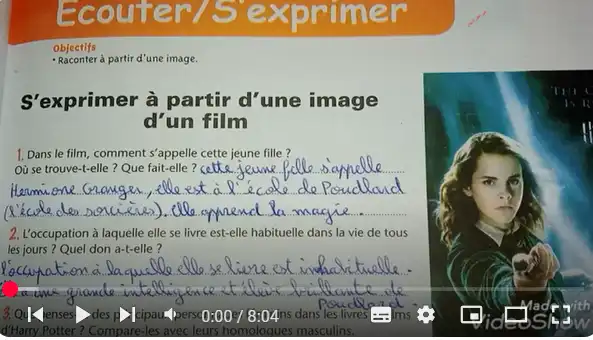 Ecouter/S'exprimer
Objectifs
• Raconter à partir d'une image.
S'exprimer à partir d'une image
d'un film
1. Dans le film, comment s'appelle cette jeune fille ?
Où se trouve-t-elle ? Que fait-elle ? cette jeune fille s'appelle
Hermione Granger, elle est à l'école de Poudlard
(l'école des sorcières). elle apprend la magie.
2. L'occupation à laquelle elle se livre est-elle habituelle dans la vie de tous
les jours ? Quel don a-t-elle ?
l'occupation à laquelle elle se livre est inhabituelle.
a une grande intelligence et élève brillante de
Poudlard.
3. des dans les livres
d'Harry Potter ? Compare-les avec leurs homologues masculins.
0:00 / 8:04
Made with
VideoShow